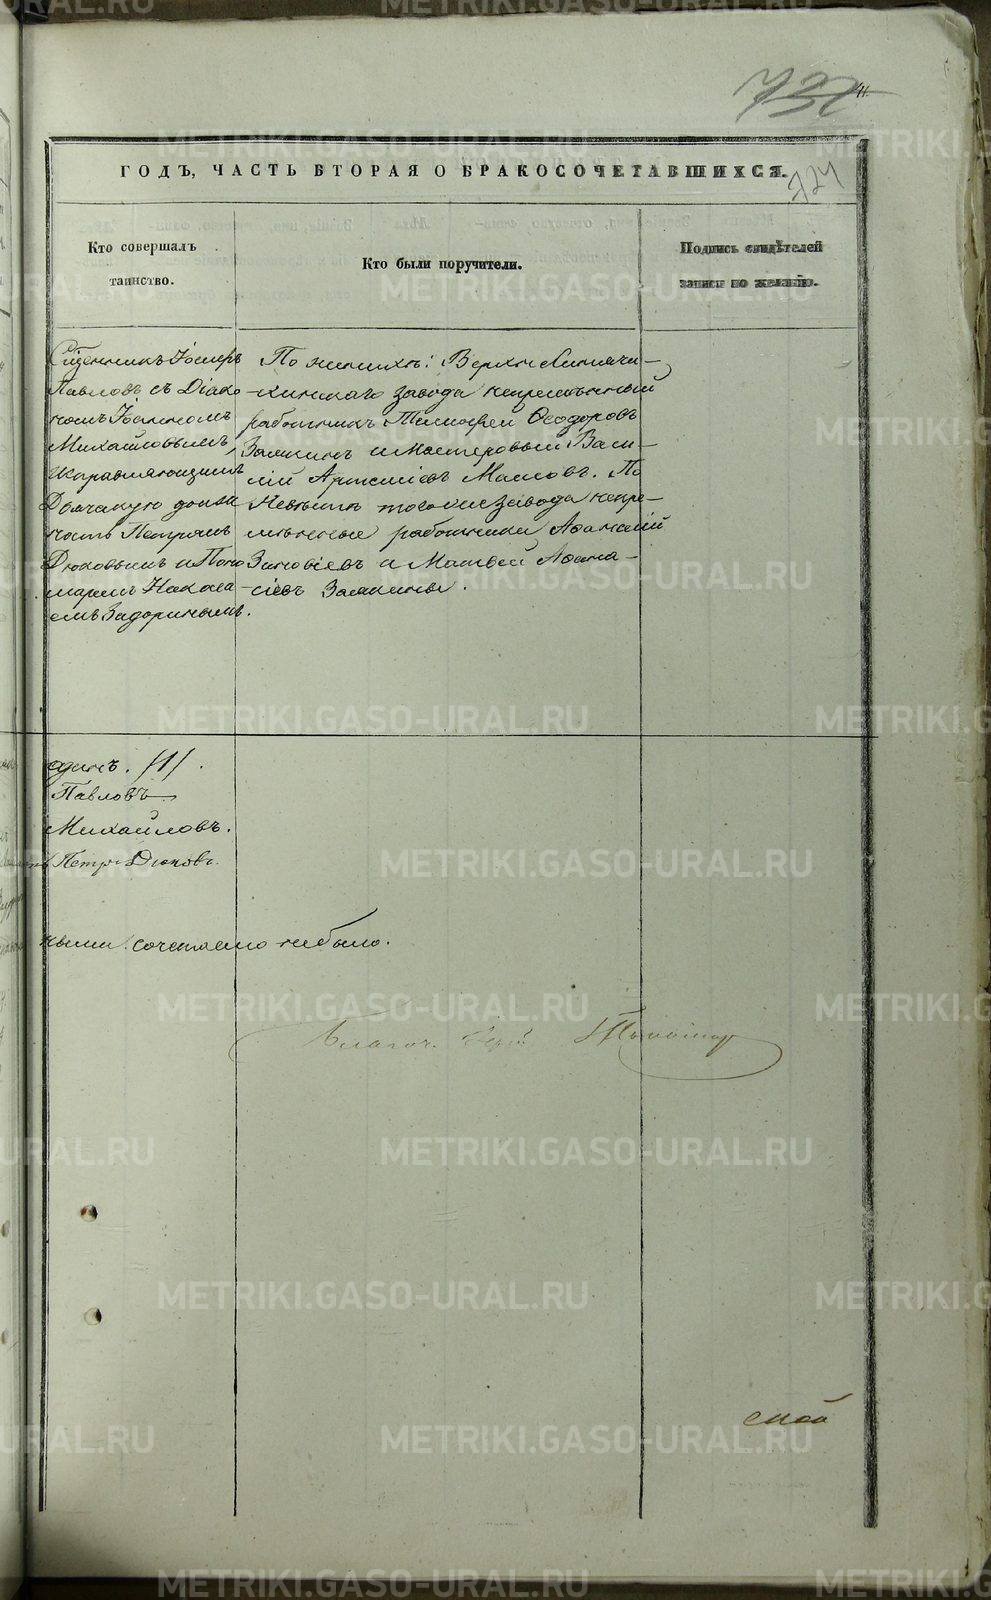 ГОДЪ, ЧАСТЬ ВТОРАЯ О БРАКОСОЧЕТАВШИХСЯ.
724
Кто совершалъ
таинство.
Кто были поручители.
Подпись свидѣтелей
записи по желанію.
Сщенникъ Іосифъ
Павловъ съ Діако
номъ Іоанномъ
Михайловымъ,
Исправляющимъ
Дьячскую долж
ность Петромъ
Дюковымъ и Поно
маремъ Никола
емъ Задоринымъ.
По женихѣ: Верхне
-кинскаго завода непремѣнный
работникъ Тимофей Ѳеодоровъ
Замкинъ и Мастеровый Васи-
лій Маловъ. По
Невѣстѣ того же завода непре-
мѣнные работники Аѳанасій
Зиновіевъ и Матвей Аѳана-
сіевъ Замкины.
одинъ. /1/.
Павловъ
Михайловъ.
Петръ Дюковъ.
ными сочетаемо не было.
Благоч.
ской
METRIKI.GASO-URAL.RU